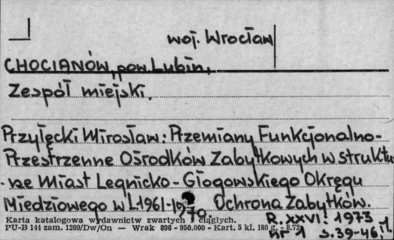 woj. Wrocław
CHOCIANÓW, pow. Lubin,
Zespół miejski.
Przyłęcki Mirosław: Przemiany Funkcjonalno-
Przestrzenne Ośrodków Zabytkowych w struktu
rze Miast Legnicko-Głogowskiego Okręgu
Miedziowego w l. 1961-1970. Ochrona Zabytków.
Karta katalogowa wydawnictw zwartych i ciągłych.
R. XXVI: 1973
PU-B 144 zam. 1209/Dw/On — Wrak 898 - 950.000 - Kart. 5 kl. 180 g.
nr 1 s. 39-46, il.